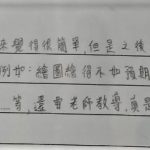 來覺得很簡單,但是之後
例如:繪圖繪得不如預期
……等,還要老師教導,真是